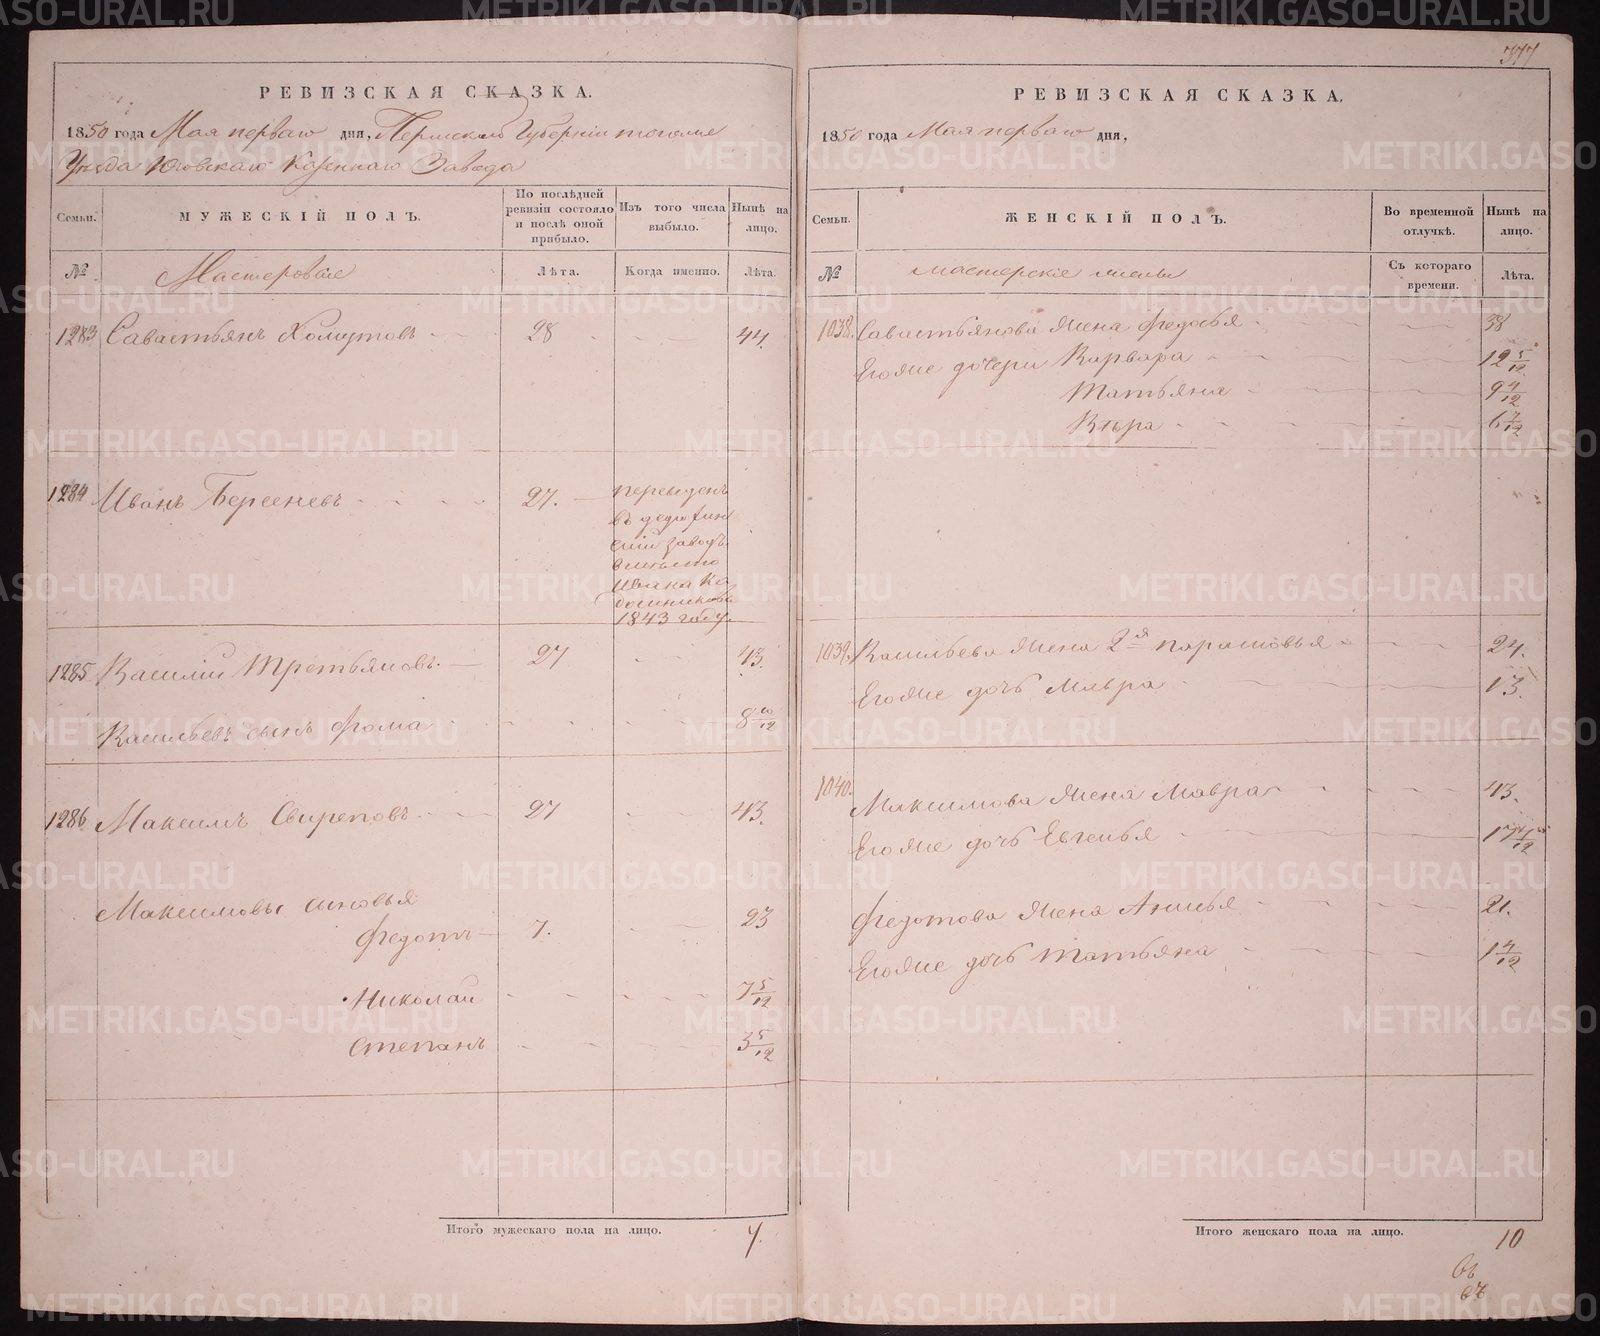 377
РЕВИЗСКАЯ СКАЗКА.
1850 года Мая перваго дня, Пермской Губернiи тогоже
Уѣзда Юговскаго Казеннаго Завода
Семьи.
МУЖЕСКIЙ ПОЛЪ.
По послѣдней ревизiи состояло и послѣ оной прибыло.
Изъ того числа выбыло.
Нынѣ на лицо.
№
Мастеровые
Лѣта.
Когда именно.
Лѣта.
1283 Савастьянъ Хомутовъ 28 44.
1284 Иванъ Берсеневъ 27. переведенъ
въ
скiй заводъ
вмѣсто
Ивана
1843 году.
1285 Василiй Третьяковъ. 27 43.
Васильевъ сынъ Фома 8 10/12
1286 Максимъ Свиреповъ 27 43.
Максимовы сыновья
Федотъ 7. 23
Николай 7 5/12
Степанъ 3 5/12
Итого мужескаго пола на лицо. 7.
РЕВИЗСКАЯ СКАЗКА.
1850 года Мая перваго дня,
Семьи.
ЖЕНСКIЙ ПОЛЪ.
Во временной отлучкѣ.
Нынѣ на лицо.
№
мастерскiе жены
Съ котораго времени.
Лѣта.
1038. Савастьянова жена Федосья 38
Егоже дочери Варвара 12 5/12
Татьяна 9 4/12
Вѣра 6 7/12
1039. Васильева жена 2я Парасковья 24.
Егоже дочь Мавра 13.
1040. Максимова жена Мавра 43.
Егоже дочь Евгенья 17
Федотова жена Анисья 21.
Егоже дочь Татьяна 1 4/12
Итого женскаго пола на лицо. 10
METRIKI.GASO-URAL.RU